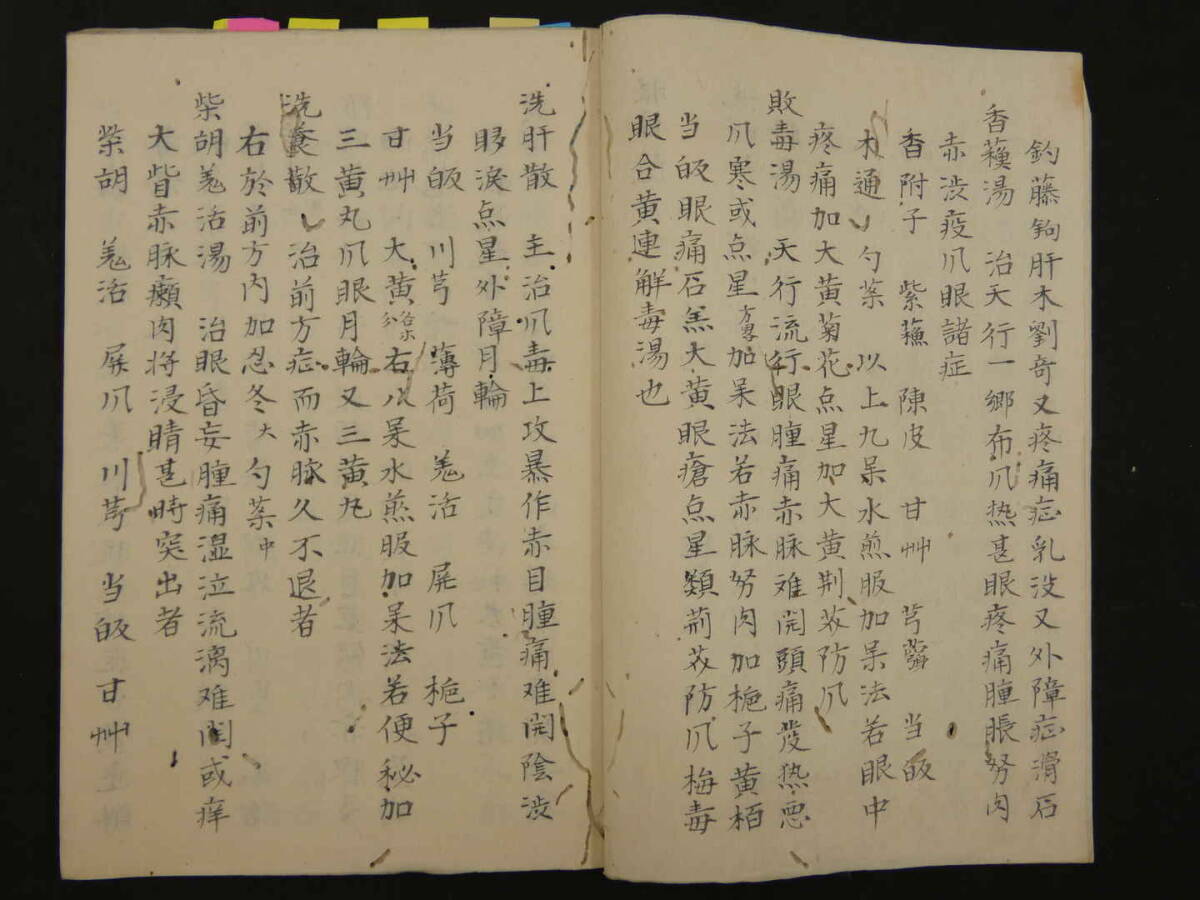 釣藤鉤肝木劉奇又疼痛症乳没又外障症滑石
香蘓湯 治天行一郷布爪热甚眼疼痛腫脹努肉
赤渋疫爪眼諸症
香附子 紫蘓 陳皮 甘艸 芎藭 当皈
木通 勺薬 以上九味水煎服加味法若眼中
疼痛加大黄菊花点星加大黄荆芥防爪
敗毒湯 天行流行眼腫痛赤脉难開頭痛發热悪
爪寒或点星方加味法若赤脉努肉加梔子黄栢
当皈眼痛石羔大黄眼瘡点星類荊芥防爪梅毒
眼合黄連解毒湯也
洗肝散 主治爪毒上攻暴作赤目腫痛难開陰渋
眵淚点星外障月輪
当皈 川芎 薄荷 羗活 屏爪 梔子
甘艸 大黄 右八味水煎服加味法若便秘加
三黄丸爪眼月輪又三黄丸
洗養散 治前方症而赤脉久不退者
右於前方内加忍冬大勺薬中
柴胡羗活湯 治眼昏妄腫痛湿泣流漓难開或痒
大眥赤脉癩肉将浸睛甚時突出者
柴胡 羗活 屏爪 川芎 当皈甘艸